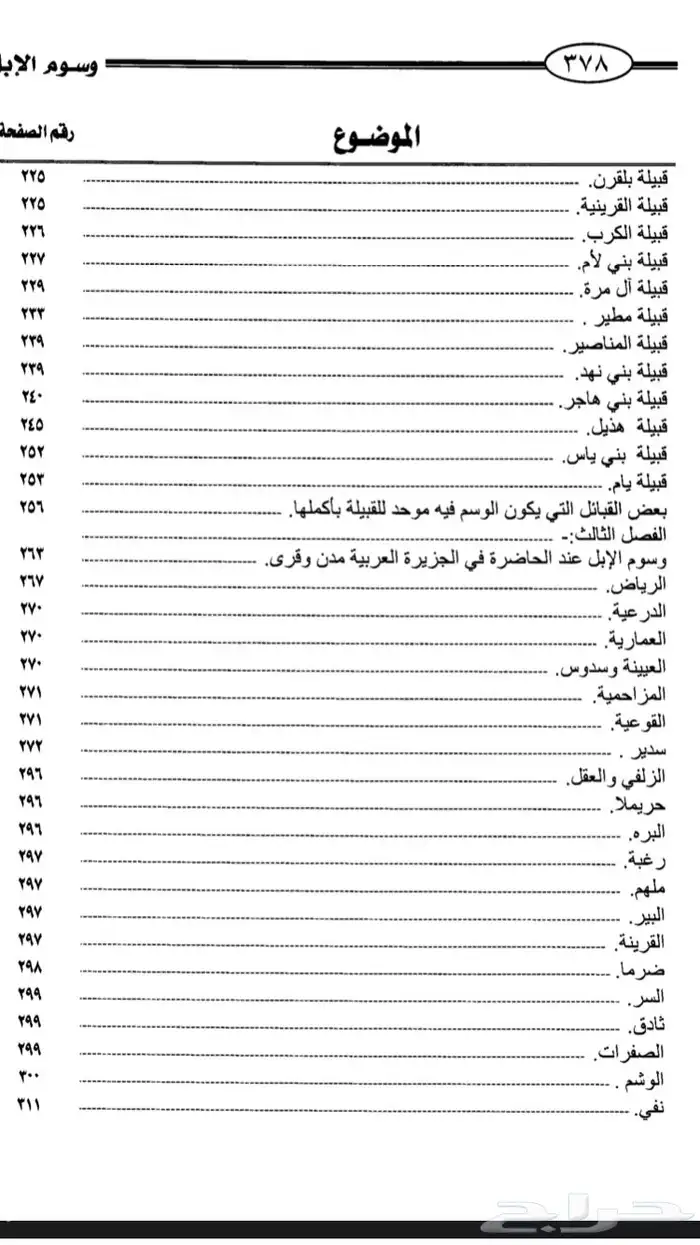 ٣٧٨
وسوم الإبل
الموضوع
رقم الصفحة
قبيلة بلقرن. ٢٢٥
قبيلة القرينية. ٢٢٥
قبيلة الكرب. ٢٢٦
قبيلة بني لأم. ٢٢٧
قبيلة آل مرة. ٢٢٩
قبيلة مطير . ٢٣٣
قبيلة المناصير. ٢٣٩
قبيلة بني نهد. ٢٣٩
قبيلة بني هاجر. ٢٤٠
قبيلة هذيل. ٢٤٥
قبيلة بني ياس. ٢٥٢
قبيلة يام. ٢٥٣
بعض القبائل التي يكون الوسم فيه موحد للقبيلة بأكملها. ٢٥٦
الفصل الثالث:-
وسوم الإبل عند الحاضرة في الجزيرة العربية مدن وقرى. ٢٦٣
الرياض. ٢٦٧
الدرعية. ٢٧٠
العمارية. ٢٧٠
العيينة وسدوس. ٢٧٠
المزاحمية. ٢٧١
القوعية. ٢٧١
سدير . ٢٧٢
الزلفي والعقل. ٢٩٦
حريملا. ٢٩٦
البره. ٢٩٦
رغبة. ٢٩٧
ملهم. ٢٩٧
البير. ٢٩٧
القرينة. ٢٩٧
ضرما. ٢٩٨
السر. ٢٩٩
ثادق. ٢٩٩
الصفرات. ٢٩٩
الوشم . ٣٠٠
نفي. ٣١١
حراج